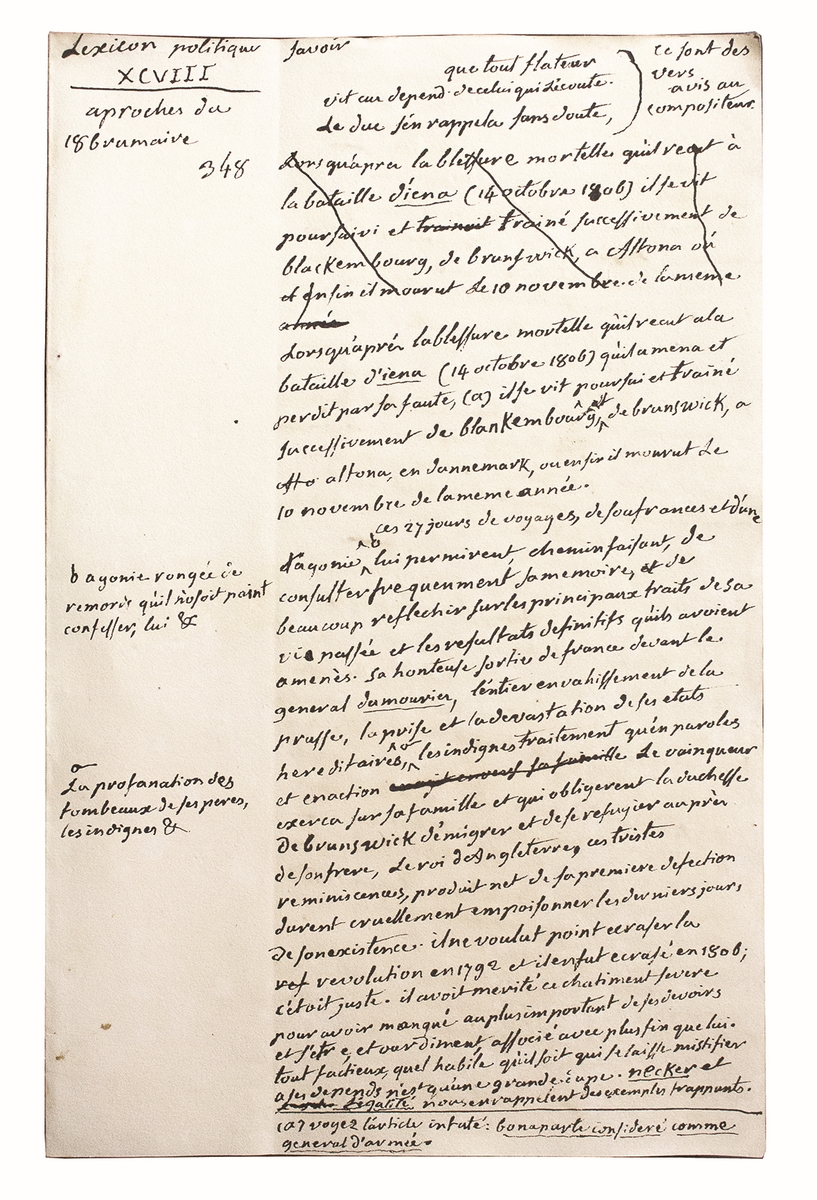 Lexicon politique
XCVIII
aproches du
18 brumaire
348
savoir
que tout flateur
vit au depend de celui qui l'écoute.
Le duc s'en rappela sans doute,
ce sont des
vers
avis au
compositeur.
Lorsqu'apres la blessure mortelle qu'il recut à
la bataille d'iena (14 octobre 1806) il se vit
poursuivi et trainoit trainé successivement de
blackembourg, de brunswick, a Altona où
et enfin il mourut Le 10 novembre de la meme
année
Lorsqu'aprés la blessure mortelle qu'il recut a la
bataille d'iena (14 octobre 1806) qu'il amena et
perdit par sa faute, (a) il se vit poursui et trainé
successivement de blankembourg, de brunswick, a
altona, en dannemark, ou enfin il mourut Le
10 novembre de la meme année.
ces 27 jours de voyages, de soufrances et d'une
d'agonie, b lui permirent, chemin faisant, de
consulter frequenment sa memoire, et de
beaucoup reflechir sur les principaux traits de sa
vie passée et les resultats definitifs qu'ils avoient
amenès. Sa honteuse sortie de france devant le
general dumourier, l'entier envahissement de la
prusse, la prise et la devastation de ses etats
hereditaires, a les indignes traitement qu'en paroles
et en action sa famille Le vainqueur
exerca sur sa famille et qui obligerent la duchesse
De brunswick d'émigrer et de se refugier auprès
de son frere, Le roi d'Angleterre, ces tristes
reminiscences, produit net de sa premiere defection
durent cruellement empoisonner les derniers jours
De son existence. il ne voulut point ecraser la
ref revolution en 1792 et il en fut ecrasé en 1806;
c'étoit juste. il avoit merité ce chatiment severe
pour avoir manqué au plus important de ses devoirs
et s'étre, et ourdiment associé avec plus fin que lui.
tout factieux, quel habile qu'il soit qui se laisse mistifier
a ses depends n'est qu'une grande dupe. necker et
Egalité nous en rappelent des exemples frappants.
(a) voyez l'article intitulé: bonaparte consideré comme
general d'armée.
b agonie rongée de
remords qu'il n'osoit point
confesser, lui &
a
La profanation des
tombeaux de ses peres,
les indignes &